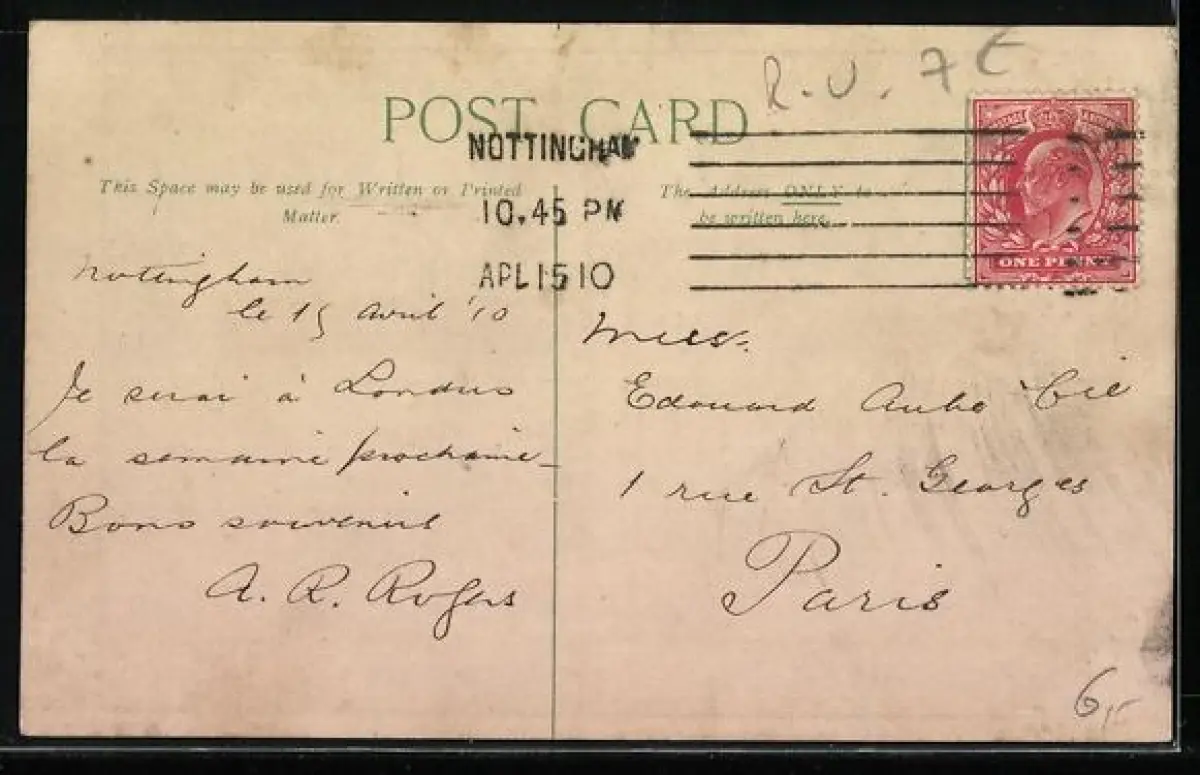 R. U. 7
POST CARD
NOTTINGHAM
10.45 PM
APL 15 10
This Space may be used for Written or Printed
Matter.
The Address ONLY to
be written here.
ONE PENNY
Nottingham
le 15 Avril '10
Je serai à Londres
la semaine prochaine
Bons souvenirs
A. R. Rogers
Edouard Aube
1 rue St. Georges
Paris
6,-